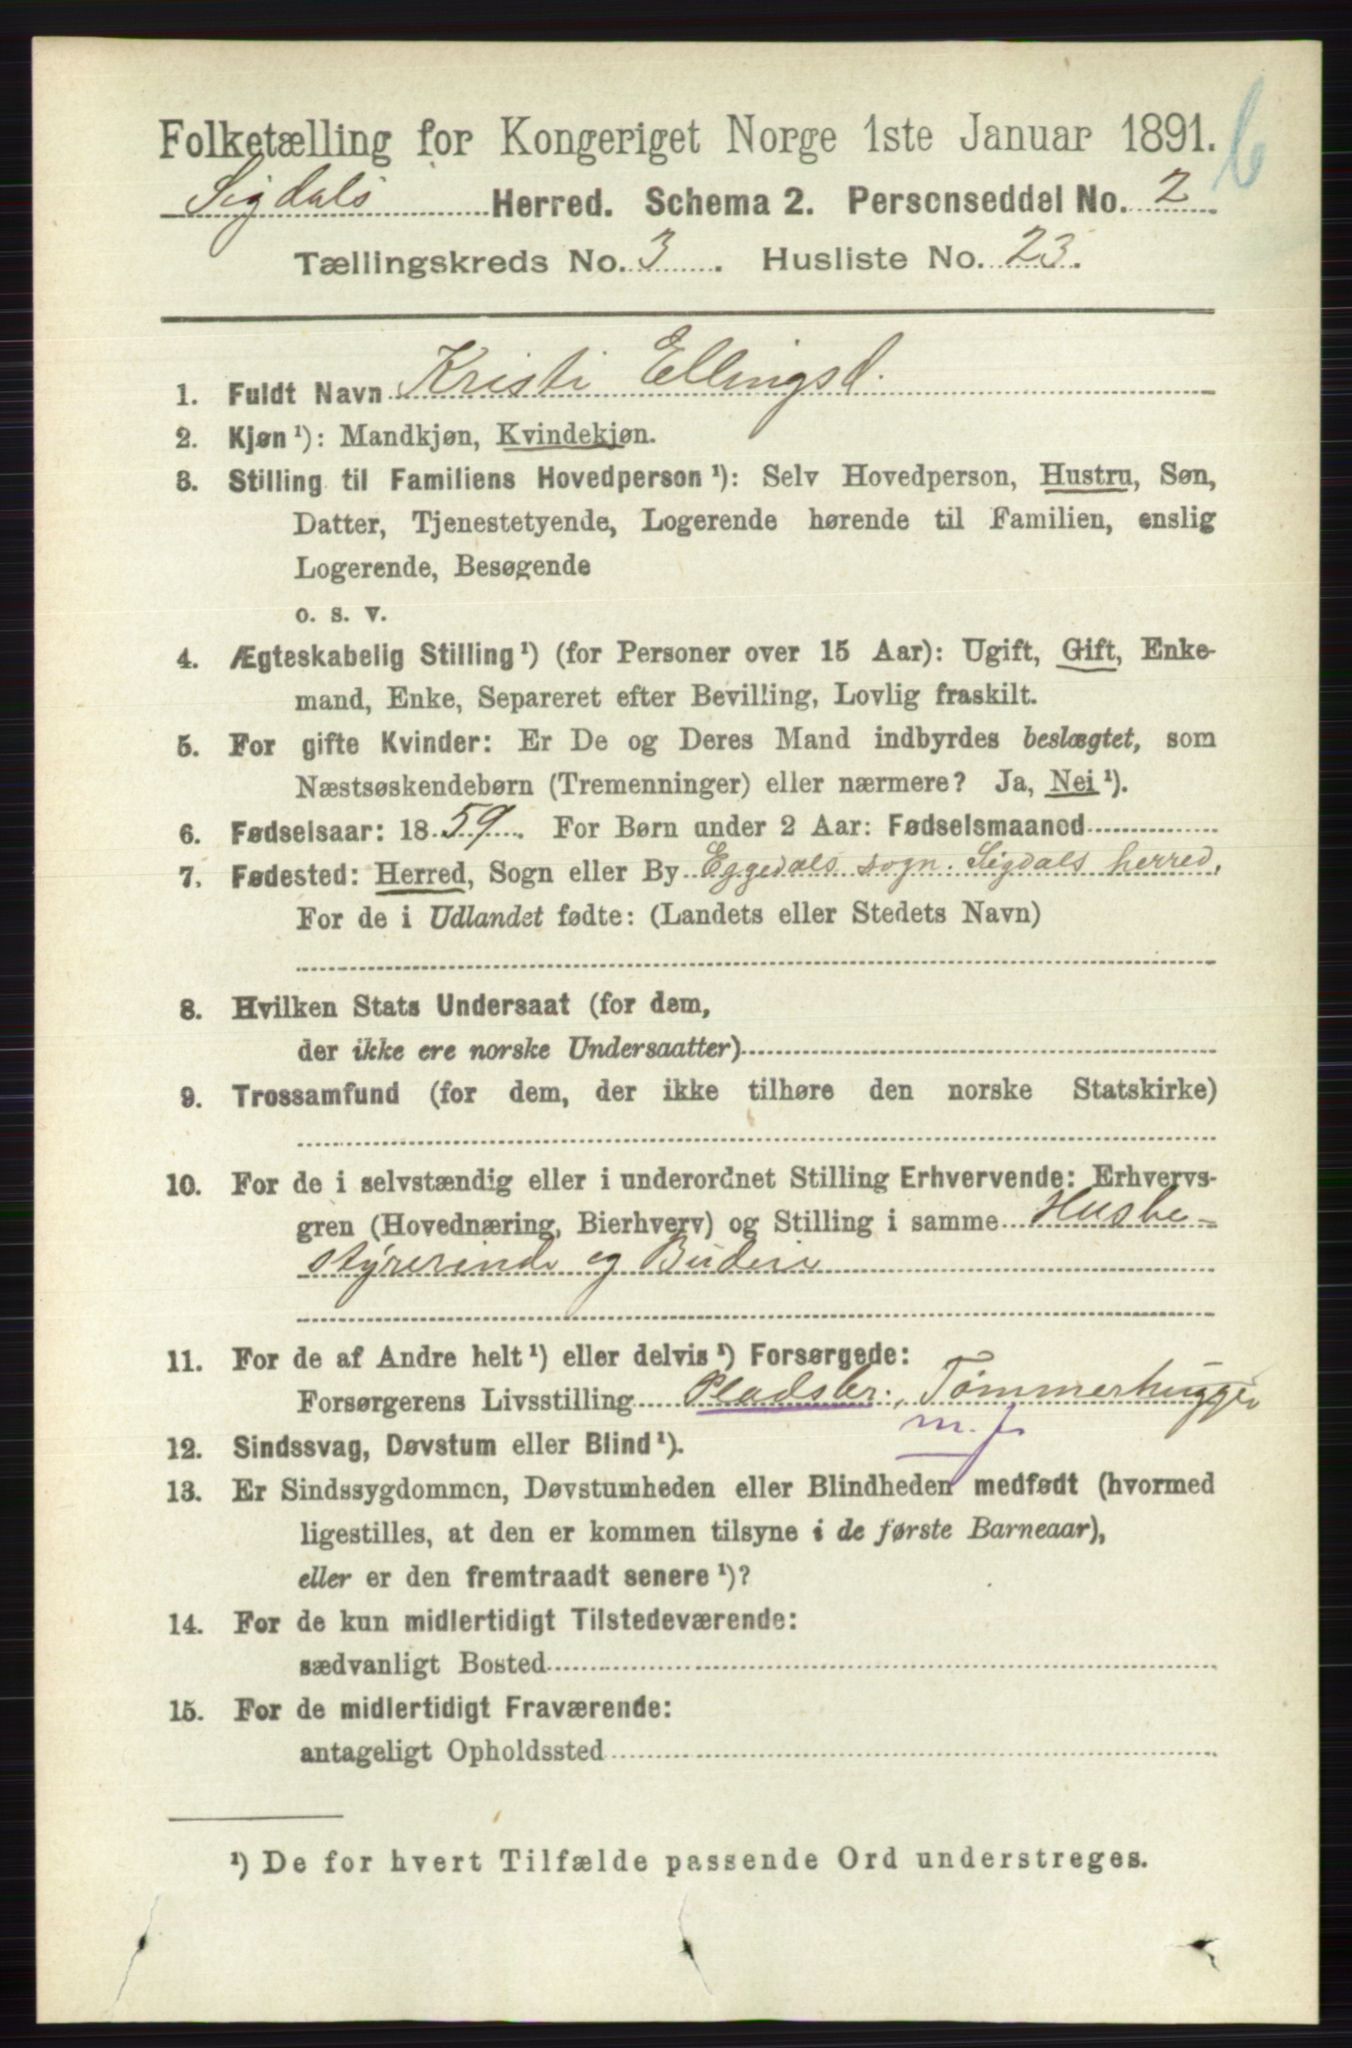 Folketælling for Kongeriget Norge 1ste Januar 1891. 6
Sigdals Herred. Schema 2. Personseddel No. 2
Tællingskreds No. 3. Husliste No. 23.
1. Fuldt Navn Kristi Ellingsd.
2. Kjøn ¹): Mandkjøn, Kvindekjøn.
3. Stilling til Familiens Hovedperson ¹): Selv Hovedperson, Hustru, Søn,
Datter, Tjenestetyende, Logerende hørende til Familien, enslig
Logerende, Besøgende
o. s. v.
4. Ægteskabelig Stilling ¹) (for Personer over 15 Aar): Ugift, Gift, Enke-
mand, Enke, Separeret efter Bevilling, Lovlig fraskilt.
5. For gifte Kvinder: Er De og Deres Mand indbyrdes beslægtet, som
Næstsøskendebørn (Tremenninger) eller nærmere? Ja, Nei ¹).
6. Fødselsaar: 1859. For Børn under 2 Aar: Fødselsmaaned
7. Fødested: Herred, Sogn eller By Eggedals sogn. Sigdals herred,
For de i Udlandet fødte: (Landets eller Stedets Navn)
8. Hvilken Stats Undersaat (for dem,
der ikke ere norske Undersaatter)
9. Trossamfund (for dem, der ikke tilhøre den norske Statskirke)
10. For de i selvstændig eller i underordnet Stilling Erhvervende: Erhvervs-
gren (Hovednæring, Bierhverv) og Stilling i samme Husbe-
styrerinde og Budeie
11. For de af Andre helt ¹) eller delvis ¹) Forsørgede:
Forsørgerens Livsstilling Pladsbr., Tømmerhugger
m. j.
12. Sindssvag, Døvstum eller Blind ¹).
13. Er Sindssygdommen, Døvstumheden eller Blindheden medfødt (hvormed
ligestilles, at den er kommen tilsyne i de første Barneaar),
eller er den fremtraadt senere ¹)?
14. For de kun midlertidigt Tilstedeværende:
sædvanligt Bosted
15. For de midlertidigt Fraværende:
antageligt Opholdssted
¹) De for hvert Tilfælde passende Ord understreges.